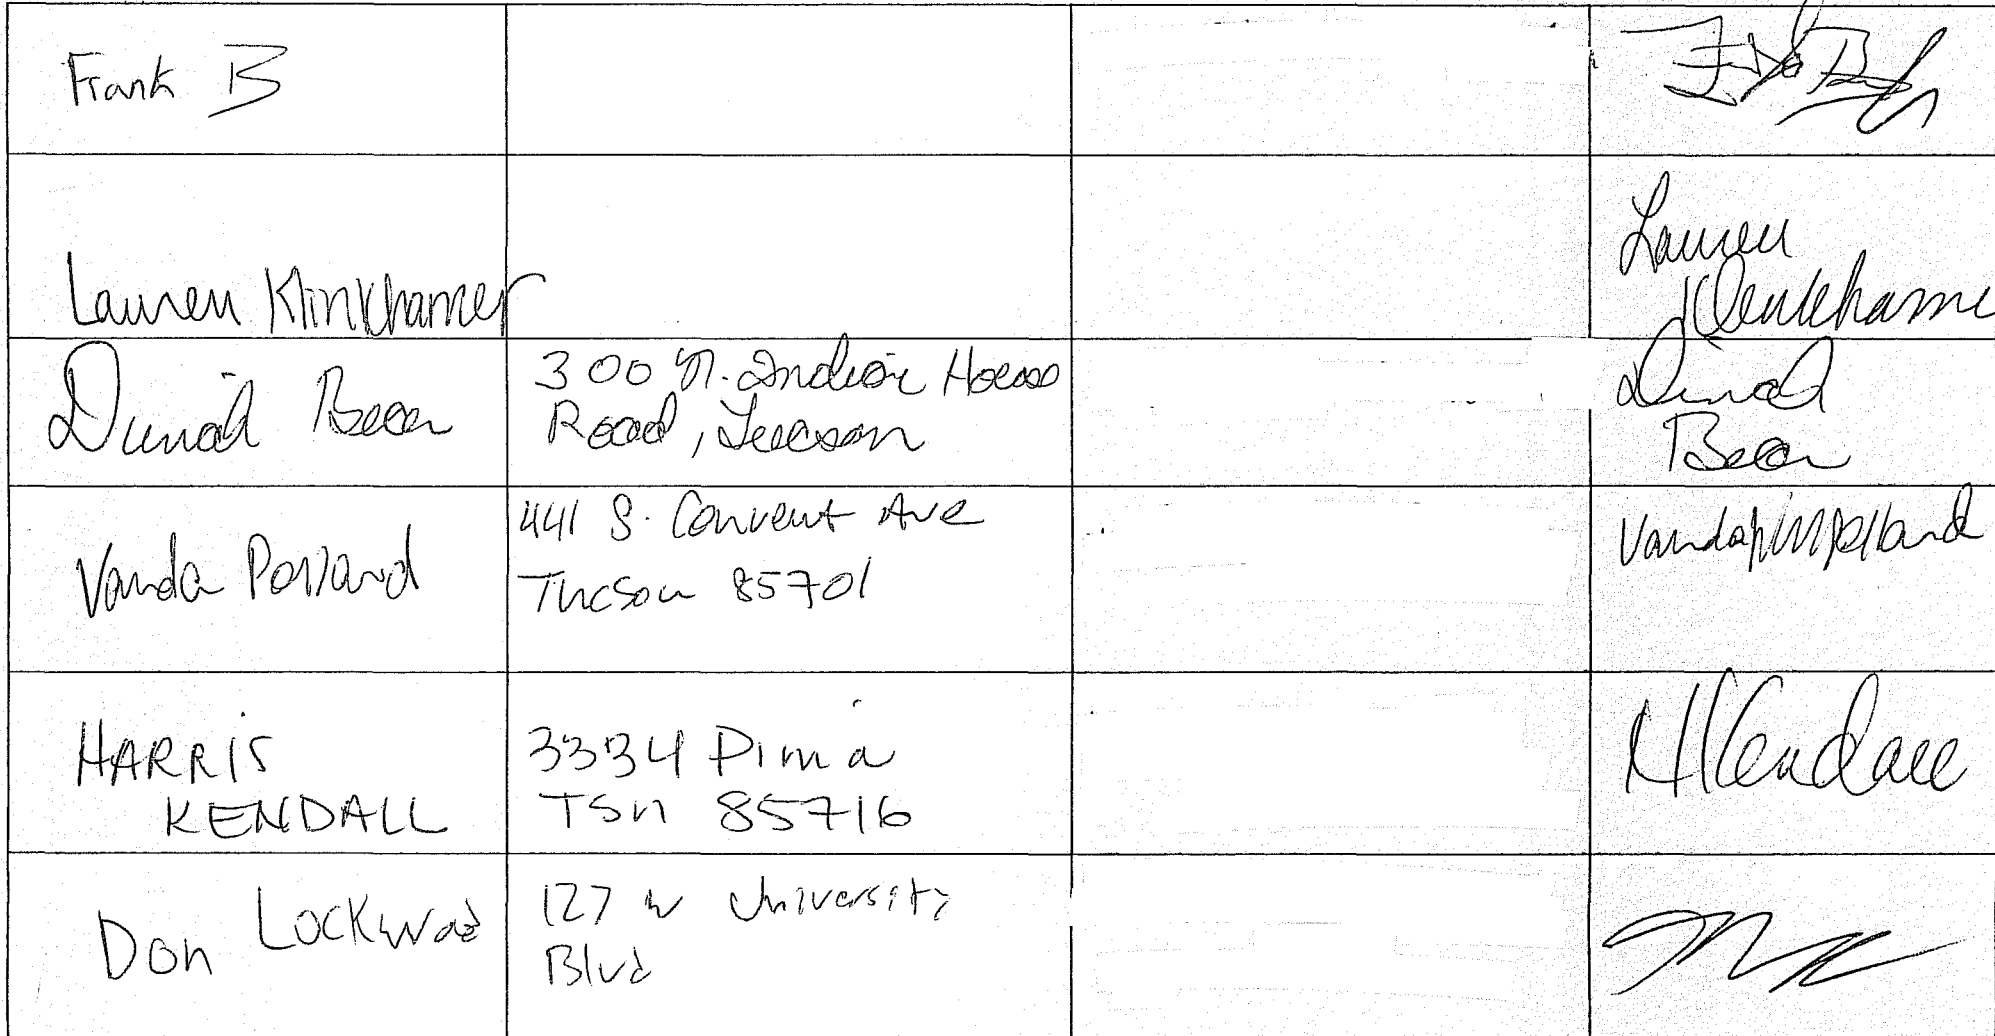 Frank B
Lauren Klinkhamer
Lauren
Klinkhame
300 N. Indian House
Road, Tucson
Bear
Bear
Vanda Pollard
441 S. Convent Ave
Tucson 85701
Vanda Pollard
HARRIS
KENDALL
3334 Pima
TSN 85716
HKendall
Don Lockwood
127 W University
Blvd